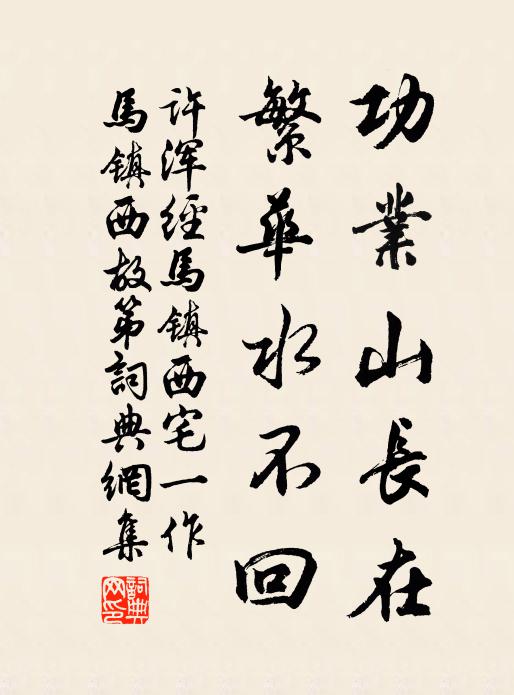 功業山長在
繁華水不回
許渾經馬鎮西宅一作
馬鎮西故第詞典網集
詞典
网印